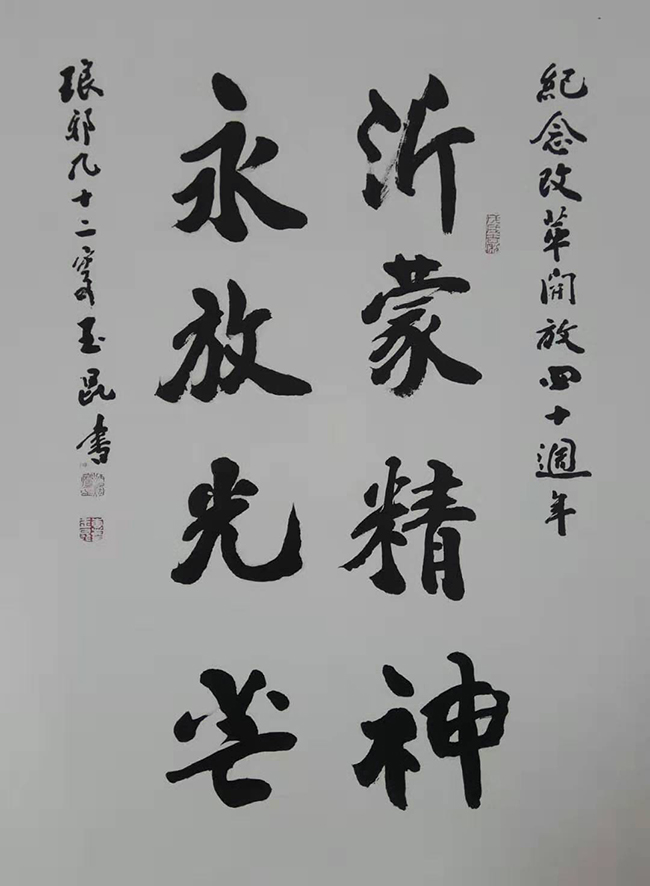 紀念改革開放四十週年
沂蒙精神
永放光芒
琅邪九十二叟玉昆書